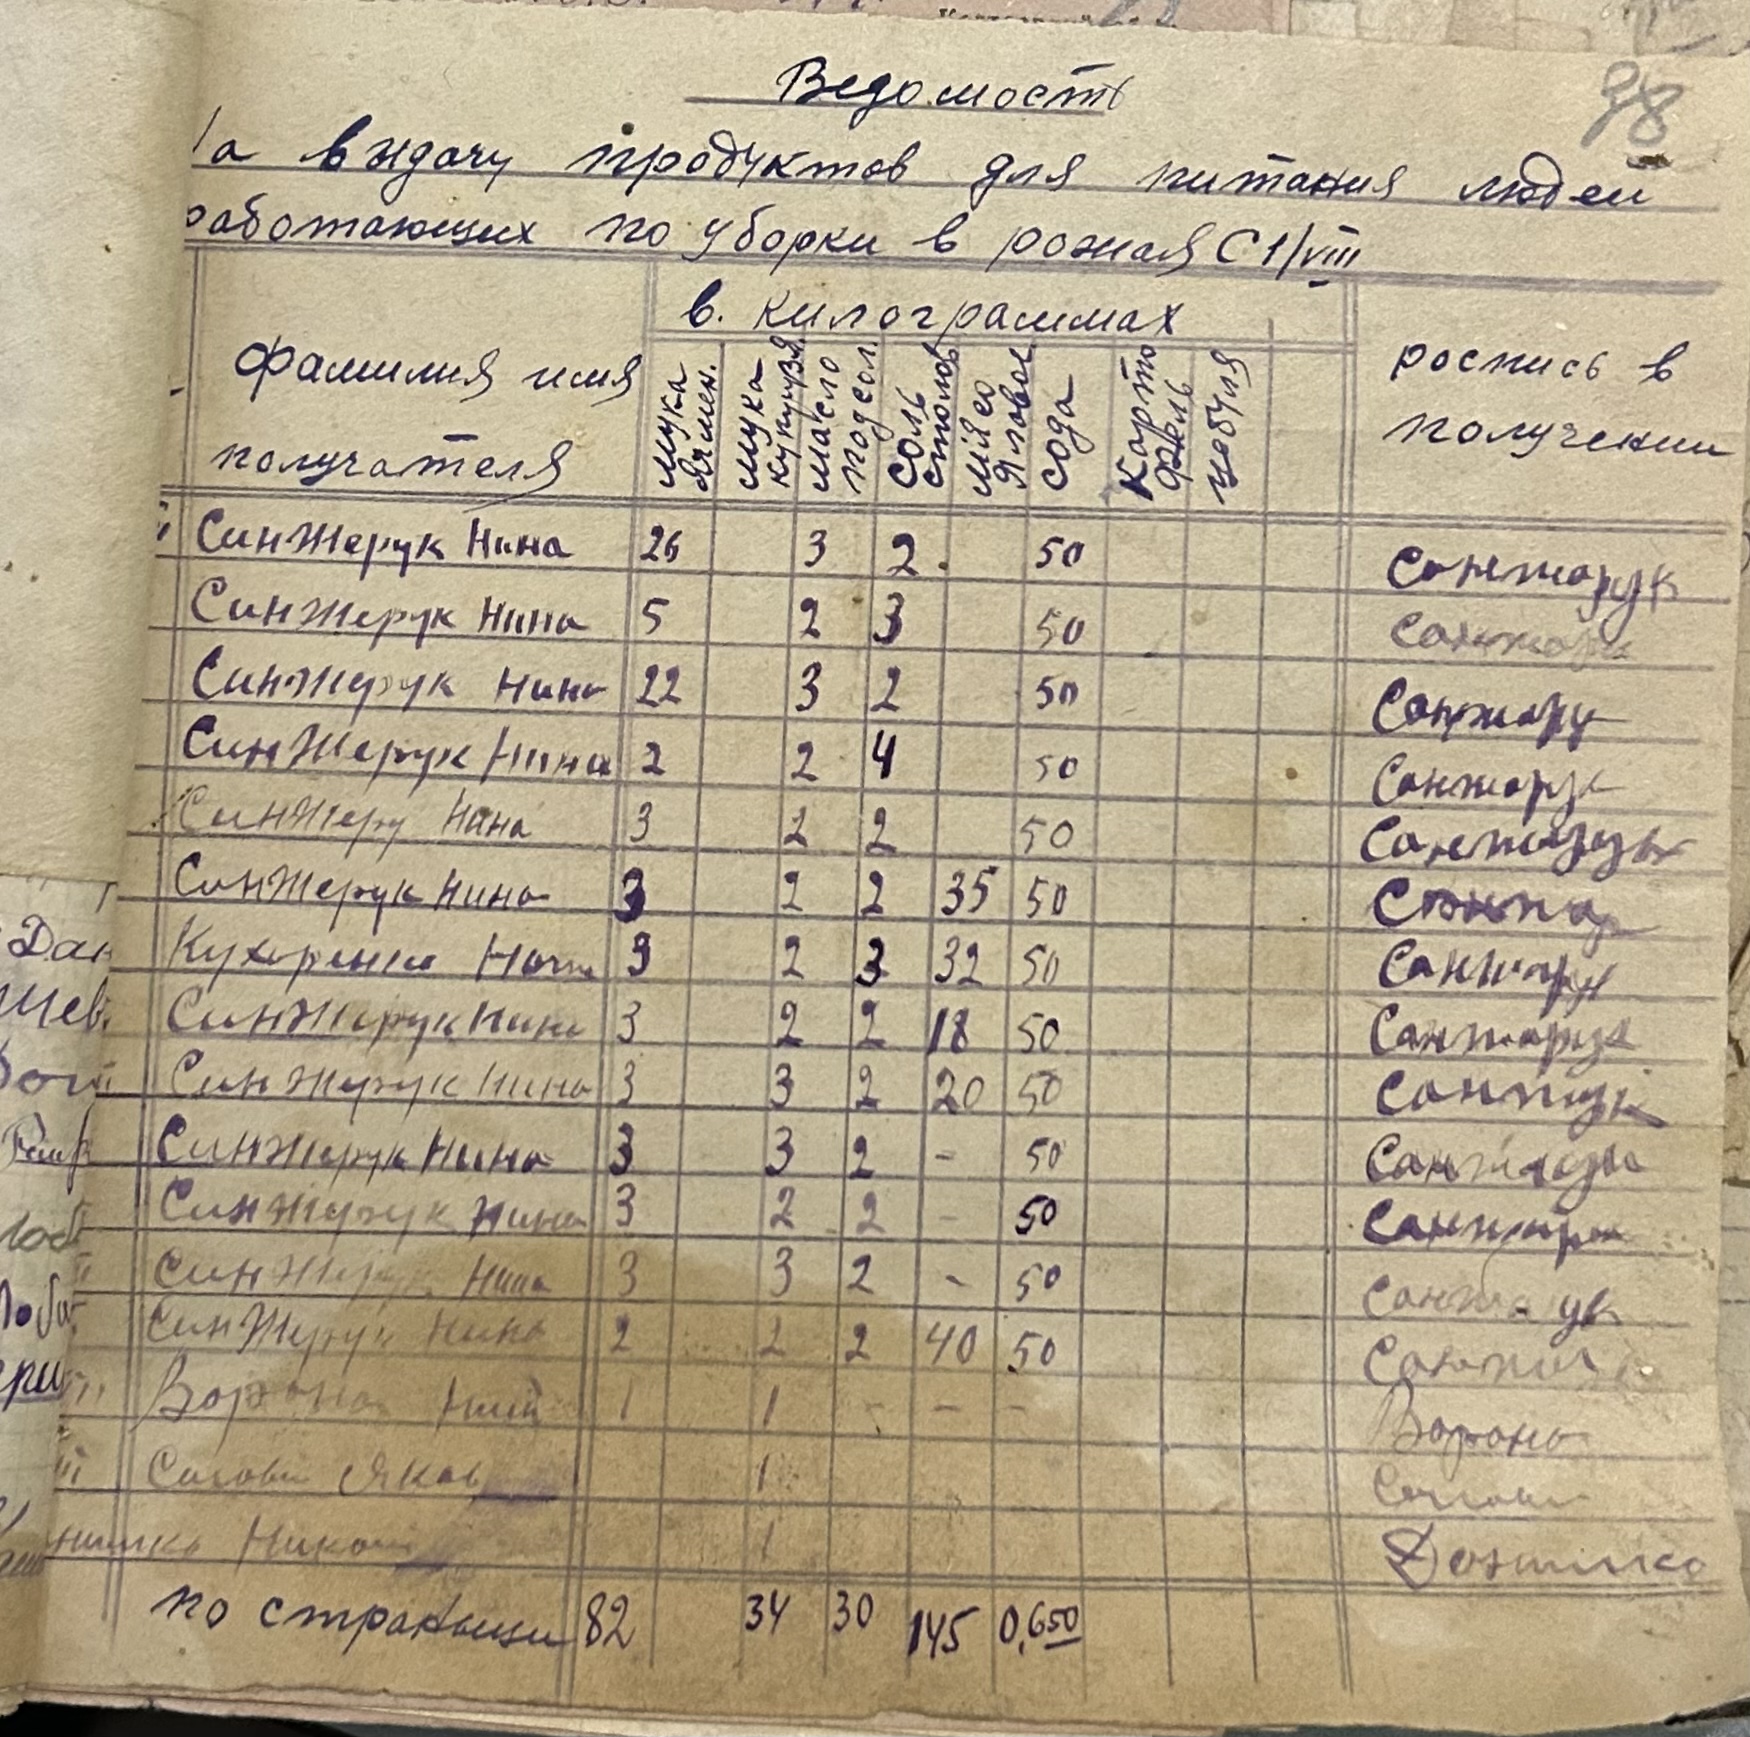 98
Ведомость
На выдачу продуктов для питания людей
работающих по уборки в рожая С 1/VIII
фамилия имя получателя
в. килограммах
мука ячмен.
мука кукурузя.
масло подсол.
соль столов
мясо яловое
сода
карто фель
цебуля
роспись в получении
Синжерук Нина 26 3 2 50 Санжарук
Синжерук Нина 5 2 3 50 Санжару
Синжерук Нина 22 3 2 50 Санжару
Синжерук Нина 2 2 4 50 Санжарук
Синжеру Нина 3 2 2 50 Санжарук
Синжерук Нина 3 2 2 35 50
Кухоренко 3 2 3 32 50 Санжару
Синжерук Нина 3 2 2 18 50 Санжарук
Синжерук Нина 3 3 2 20 50
Синжерук Нина 3 3 2 - 50
Синжерук Нина 3 2 2 - 50 Санжару
Синжерук Нина 3 3 2 - 50
Синжерук Нина 2 2 2 40 50
Ворона 1 1 - - - Ворона
Яков 1
1
по страници 82 34 30 145 0,650